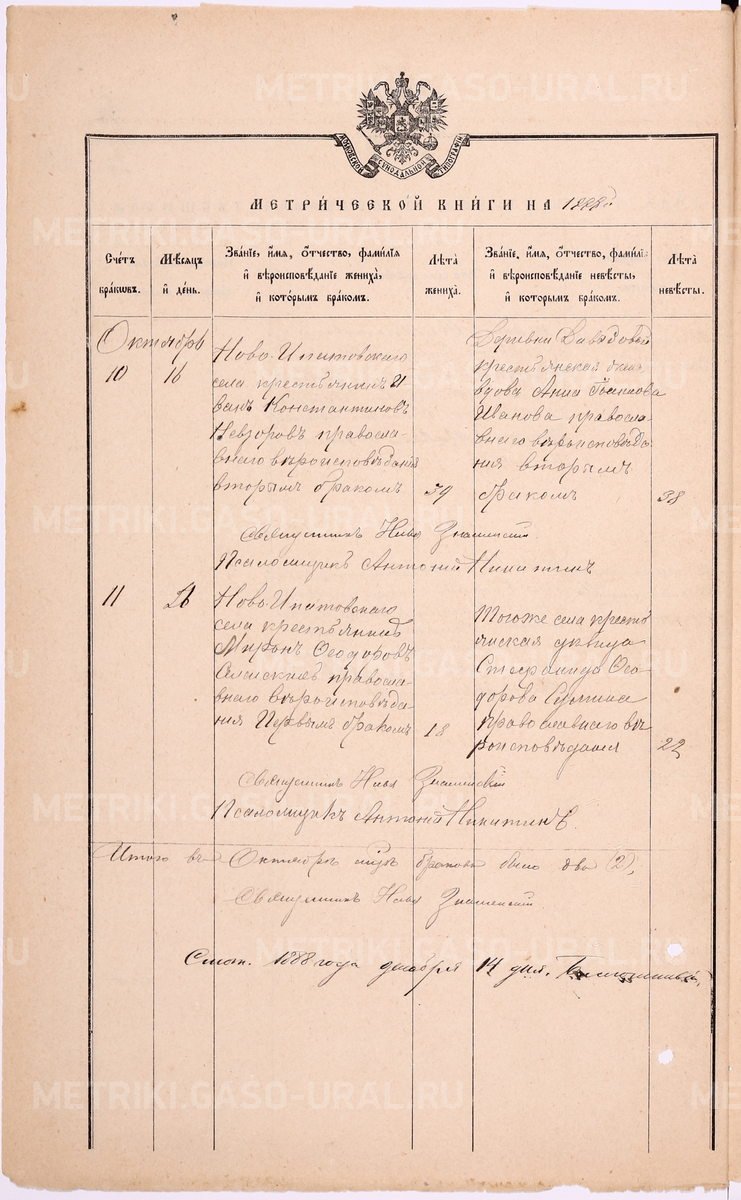 МОСКОВСКОЙ СИНОДАЛЬНОЙ ТИПОГРАФІИ
МЕТРИЧЕСКОЙ КНИГИ НА 1888 г.
Счетъ браковъ.
Мѣсяцъ и день.
Званіе, имя, отчество, фамилія и вѣроисповѣданіе жениха, и которымъ бракомъ.
Лѣта жениха.
Званіе, имя, отчество, фамилія и вѣроисповѣданіе невѣсты, и которымъ бракомъ.
Лѣта невѣсты.
Октябрь
10
16
Ново-Ипатовскаго
села крестьянинъ И
ванъ Константиновъ
Невзоровъ правосла-
внаго вѣроисповѣданія
вторымъ бракомъ
39
Деревни
крестьянская
вдова Анна
Иванова правосла-
внаго вѣроисповѣда-
нія вторымъ
бракомъ
38
Священникъ Илья Знаменскій
Псаломщикъ Антоній Никитинъ
11
26
Ново-Ипатовскаго
села крестьянинъ
Миронъ Ѳеодоровъ
правосла-
внаго вѣроисповѣда-
нія первымъ бракомъ
18
Тогоже села кресть
янская дѣвица
Стефанида Ѳео-
дорова
православнаго вѣ
роисповѣданія
22
Священникъ Илья Знаменскій
Псаломщикъ Антоній Никитинъ
Итого въ Октябрѣ мцѣ браковъ было два (2).
Священникъ Илья Знаменскій
1888 года декабря 14 дня.
METRIKI.GASO-URAL.RU